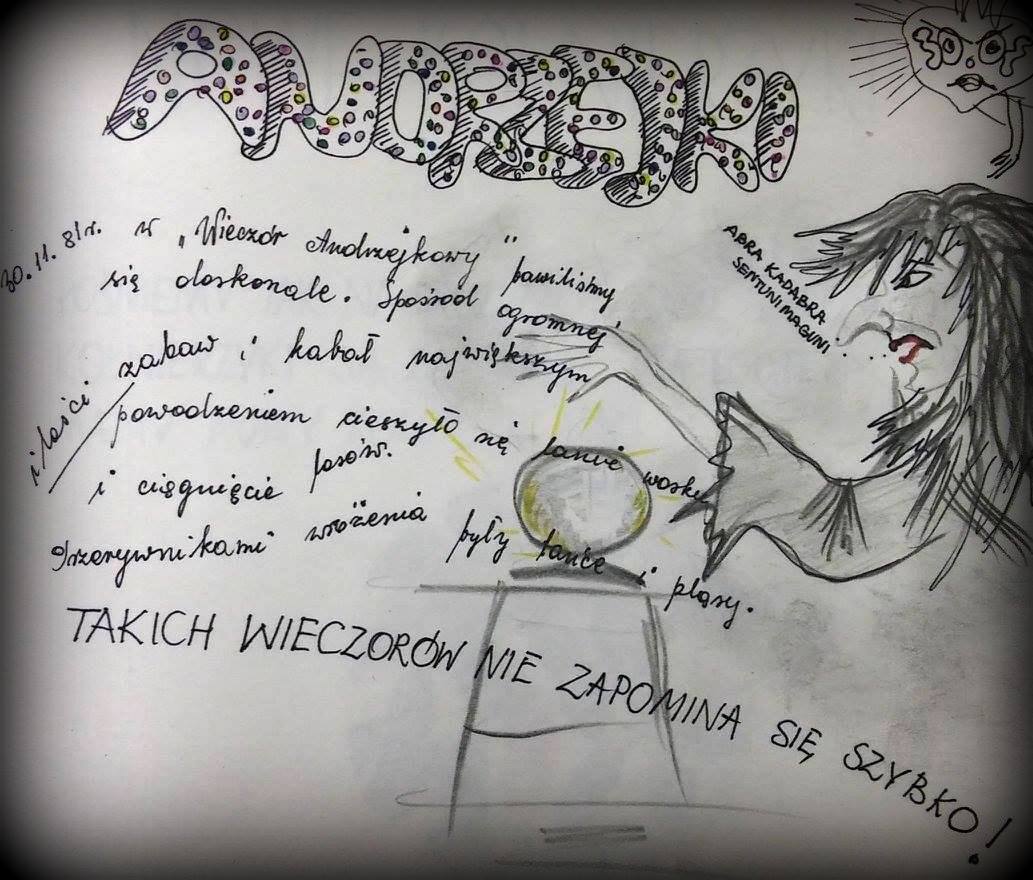 ANDRZEJKI
30.11.81r. w „Wieczór Andrzejkowy" bawiliśmy
się doskonale. Spośród ogromnej
ilości zabaw i kabał największym
powodzeniem cieszyło się lanie wosku
i ciągnięcie losów.
Przerywnikami wróżenia były tańce i pląsy.
TAKICH WIECZORÓW NIE ZAPOMINA SIĘ SZYBKO!
ABRA KADABRA
SENTUNIMAGUNI.....